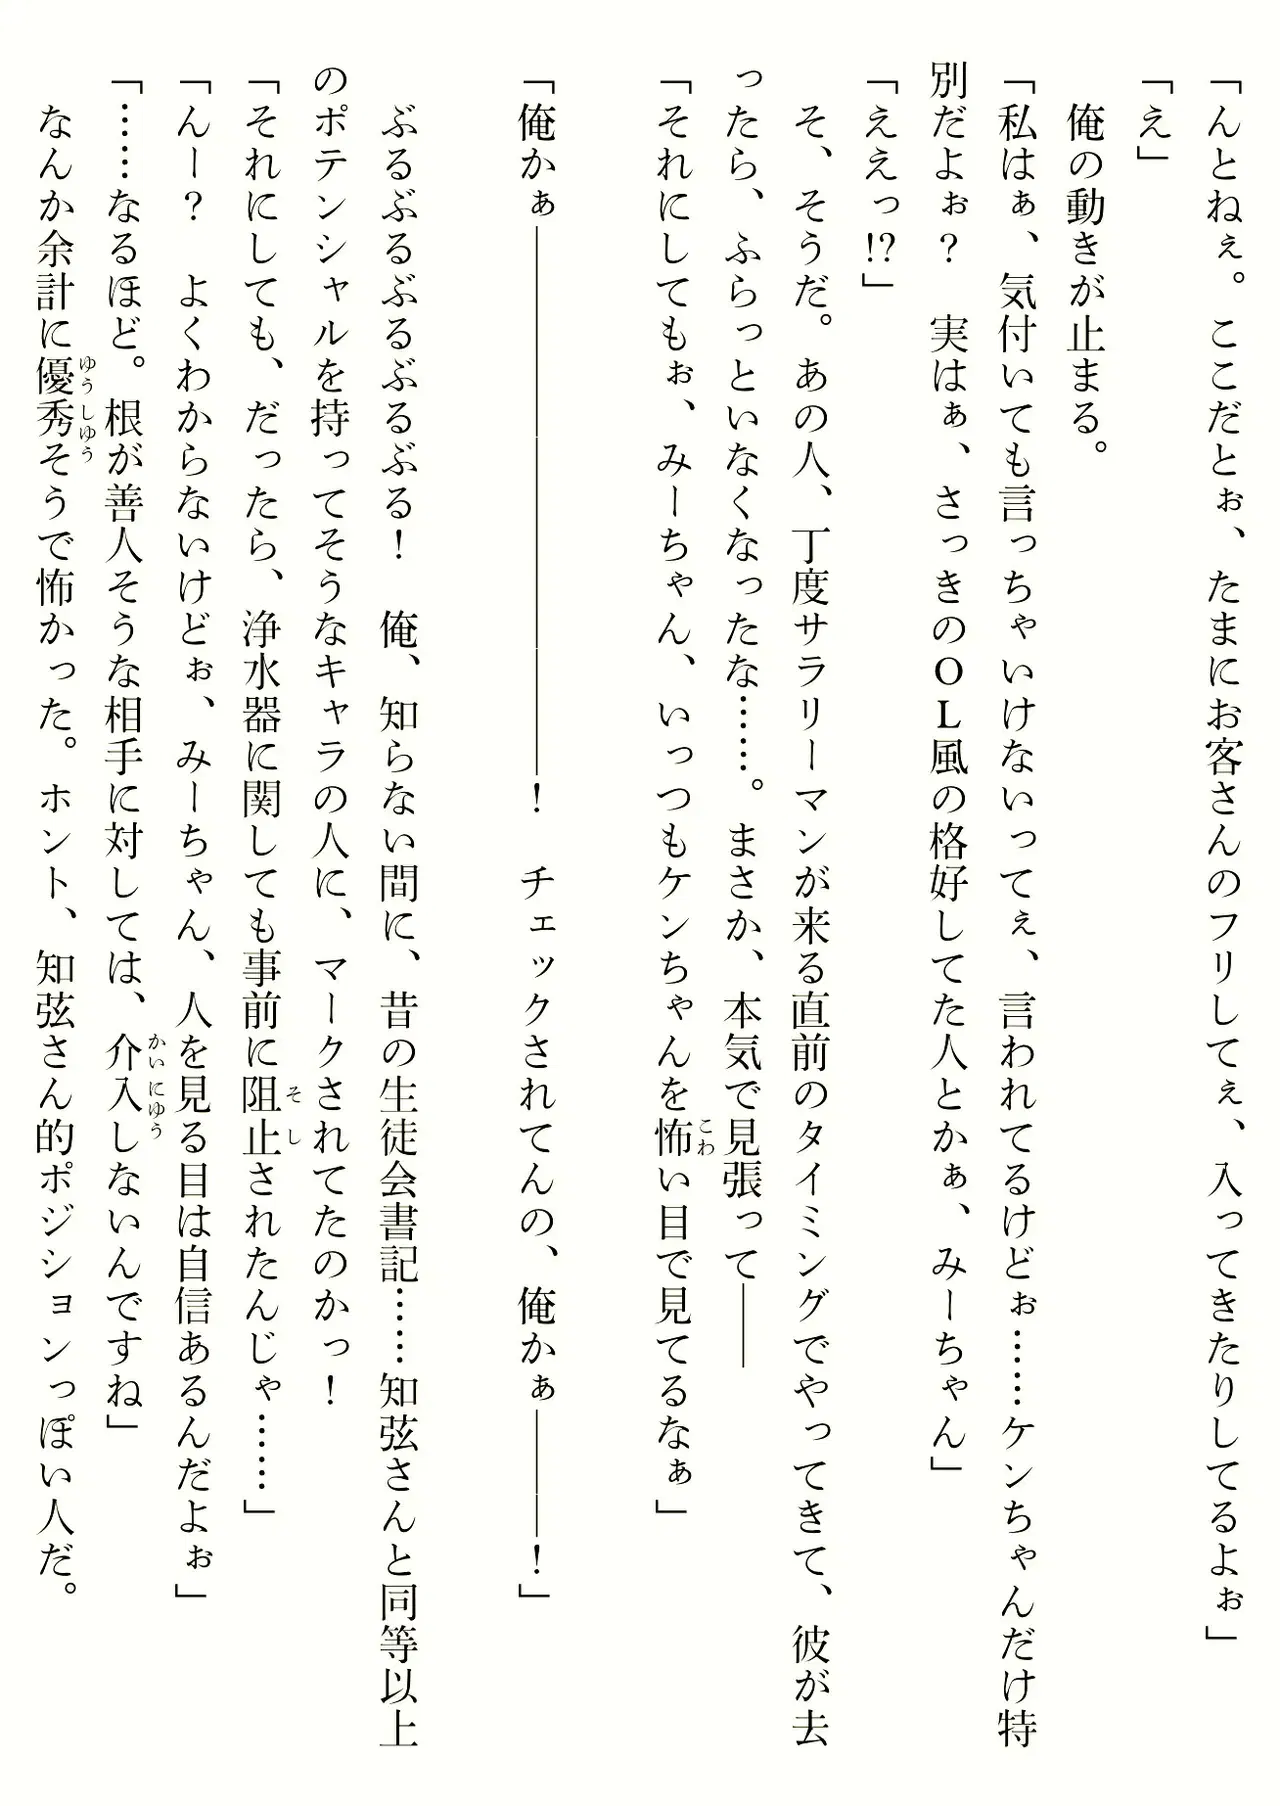 「んとねぇ。ここだとぉ、たまにお客さんのフリしてぇ、入ってきたりしてるよぉ」
「え」
　俺の動きが止まる。
「私はぁ、気付いても言っちゃいけないってぇ、言われてるけどぉ……ケンちゃんだけ特
別だよぉ？　実はぁ、さっきのOL風の格好してた人とかぁ、みーちゃん」
「ええっ!?」
　そ、そうだ。あの人、丁度サラリーマンが来る直前のタイミングでやってきて、彼が去
ったら、ふらっといなくなったな……。まさか、本気で見張って――
「それにしてもぉ、みーちゃん、いっつもケンちゃんを怖い目で見てるなぁ」
「俺かぁ―――――――――――――！　チェックされてんの、俺かぁ――――！」
　ぶるぶるぶるぶるぶる！　俺、知らない間に、昔の生徒会書記……知弦さんと同等以上
のポテンシャルを持ってそうなキャラの人に、マークされてたのかっ！
「それにしても、だったら、浄水器に関しても事前に阻止されたんじゃ……」
「んー？　よくわからないけどぉ、みーちゃん、人を見る目は自信あるんだよぉ」
「……なるほど。根が善人そうな相手に対しては、介入しないんですね」
　なんか余計に優秀そうで怖かった。ホント、知弦さん的ポジションっぽい人だ。